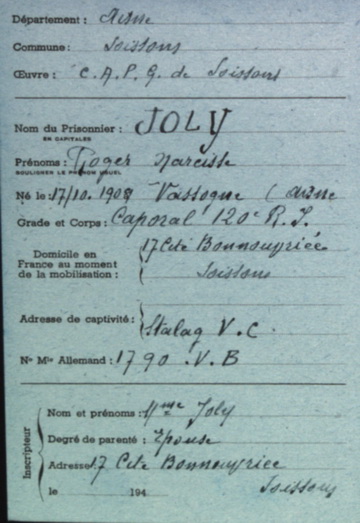 Département : Aisne
Commune : Soissons
Œuvre : C.A.P.G. de Soissons
Nom du Prisonnier : JOLY
EN CAPITALES
Prénoms : Roger Narcisse
SOULIGNER LE PRÉNOM USUEL
Né le 17/10. 1908 Vassogne (Aisne
Grade et Corps : Caporal 120e R.I.
Domicile en France au moment de la mobilisation : 17 Cité
Soissons
Adresse de captivité : Stalag V.C.
N° Mle Allemand : 1790 .V.B
Inscripteur
Nom et prénoms : Mme Joly
Degré de parenté : Epouse
Adresse 17 Cité
Soissons
le 194